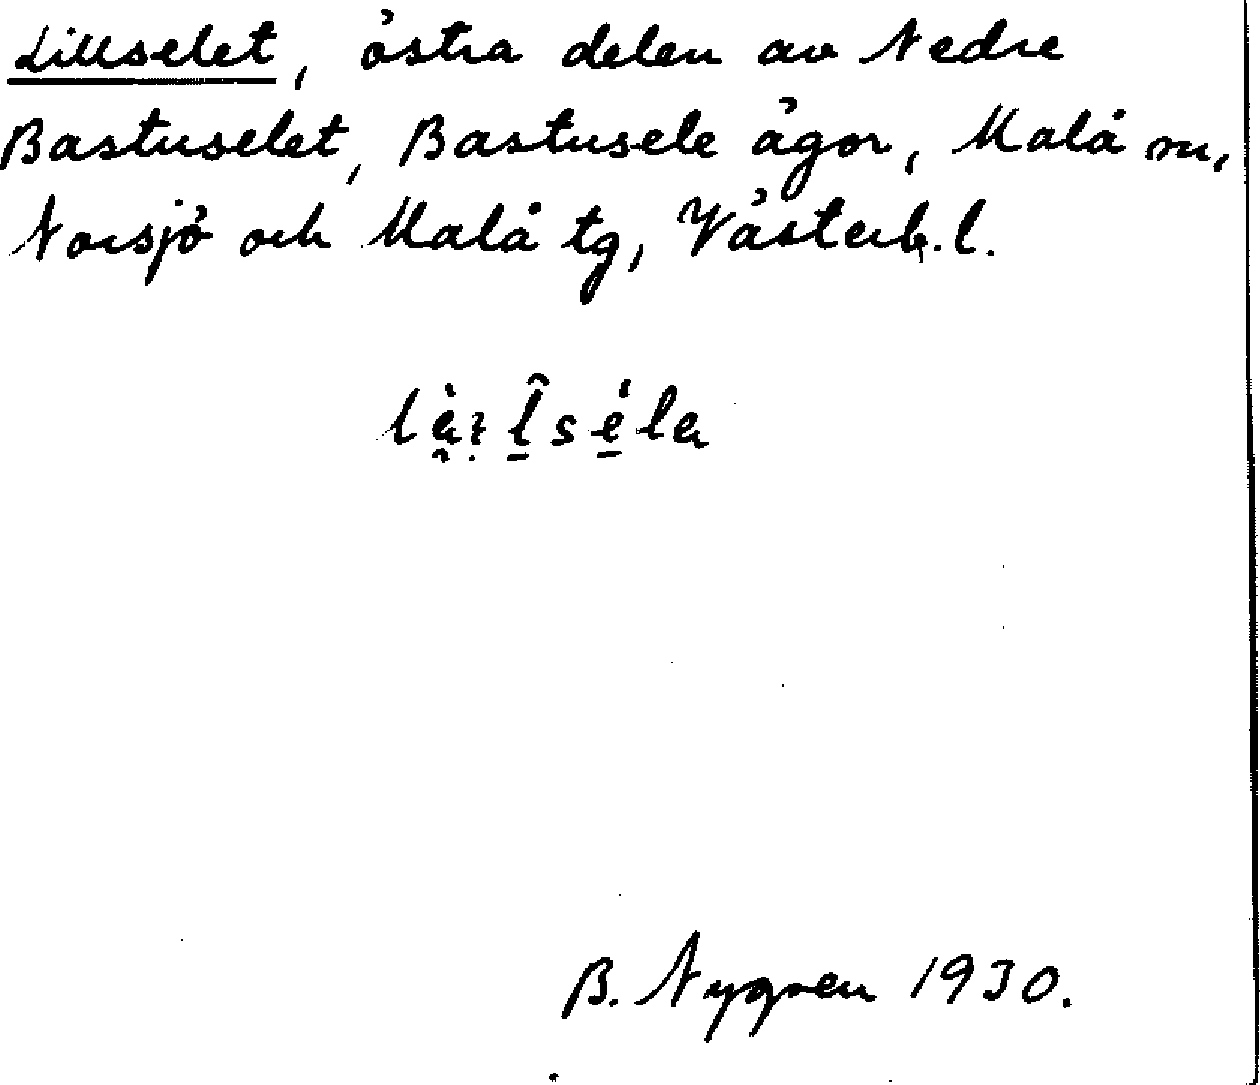 Lillselet, östra delen av Nedre
Bastuselet, Bastusele ägor, Malå sn,
Norsjö och Malå tg, Västerb. l.
B. Nygren 1930.